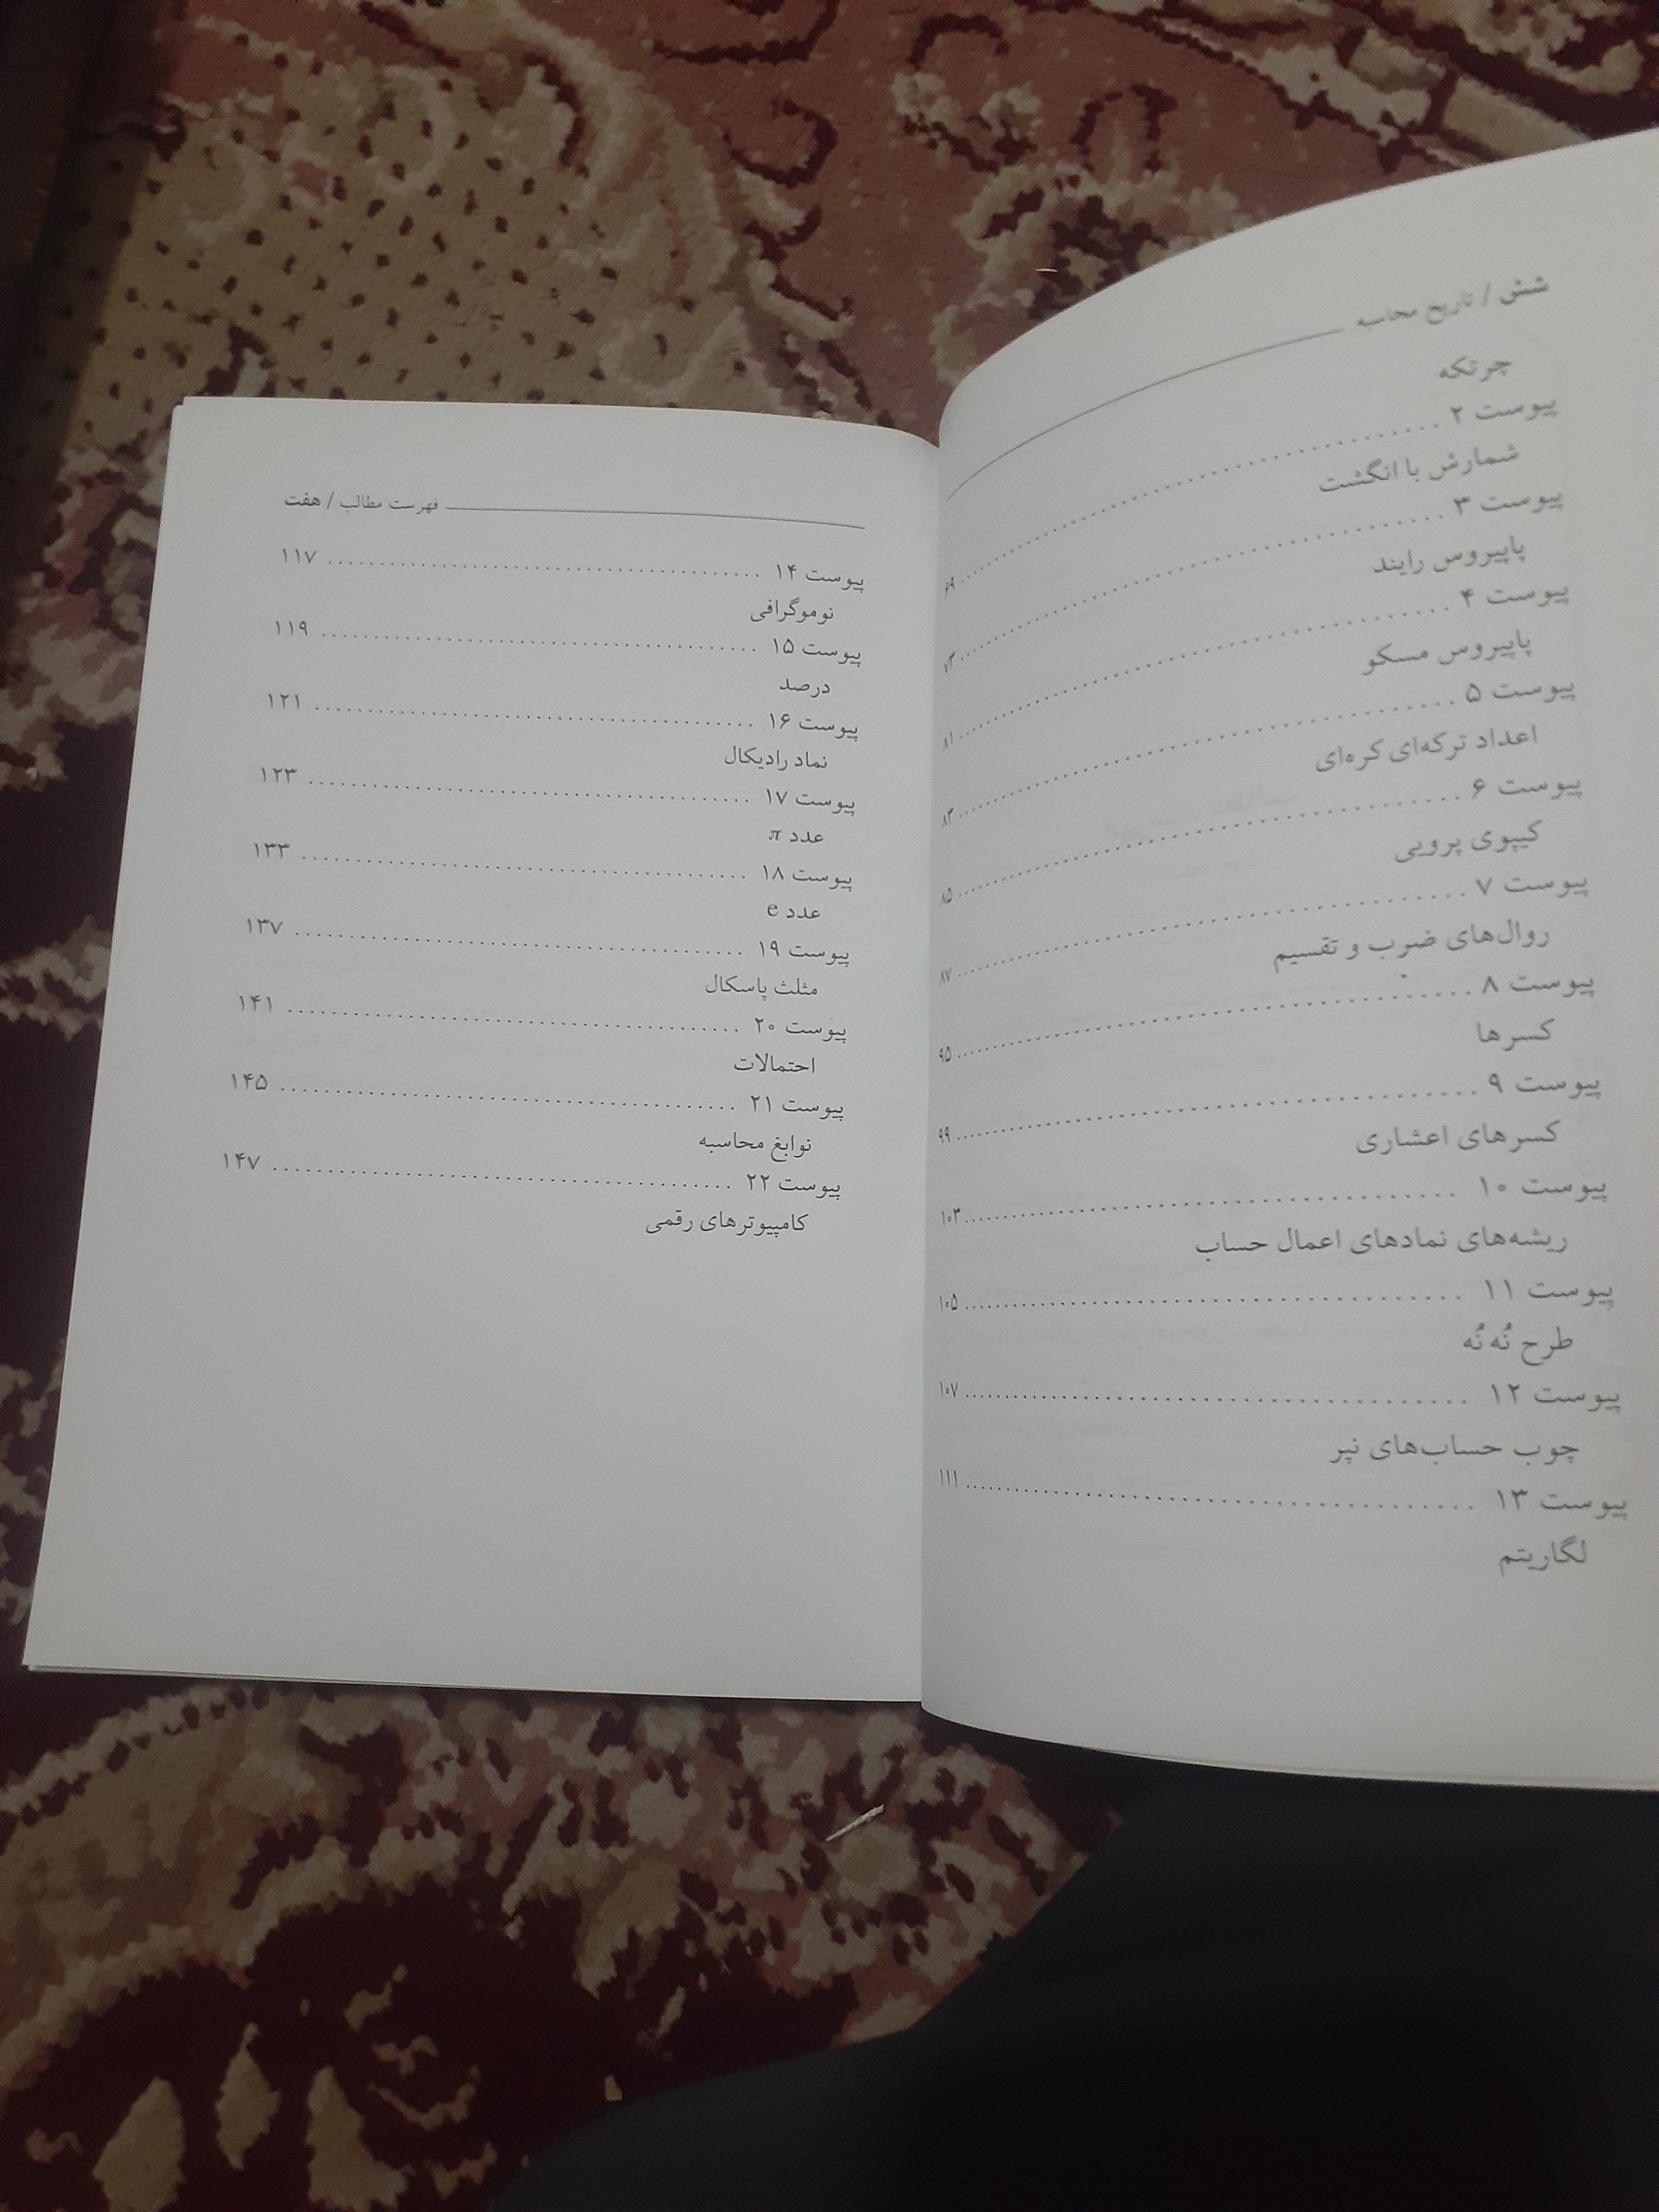 شش / تاریخ محاسبه
چرتکه
پیوست ۲ ........ ۶۹
شمارش با انگشت
پیوست ۳ ........ ۷۳
پاپیروس رایند
پیوست ۴ ........ ۸۱
پاپیروس مسکو
پیوست ۵ ........ ۸۳
اعداد ترکه‌ای کره‌ای
پیوست ۶ ........ ۸۵
کیپوی پرویی
پیوست ۷ ........ ۸۷
روال‌های ضرب و تقسیم
پیوست ۸ ........ ۹۵
کسرها
پیوست ۹ ........ ۹۹
کسرهای اعشاری
پیوست ۱۰ ........ ۱۰۳
ریشه‌های نمادهای اعمال حساب
پیوست ۱۱ ........ ۱۰۵
طرح نُه نُه
پیوست ۱۲ ........ ۱۰۷
چوب حساب‌های نپر
پیوست ۱۳ ........ ۱۱۱
لگاریتم
فهرست مطالب / هفت
پیوست ۱۴ ........ ۱۱۷
نوموگرافی
پیوست ۱۵ ........ ۱۱۹
درصد
پیوست ۱۶ ........ ۱۲۱
نماد رادیکال
پیوست ۱۷ ........ ۱۲۳
عدد π
پیوست ۱۸ ........ ۱۳۳
عدد e
پیوست ۱۹ ........ ۱۳۷
مثلث پاسکال
پیوست ۲۰ ........ ۱۴۱
احتمالات
پیوست ۲۱ ........ ۱۴۵
نوابغ محاسبه
پیوست ۲۲ ........ ۱۴۷
کامپیوترهای رقمی